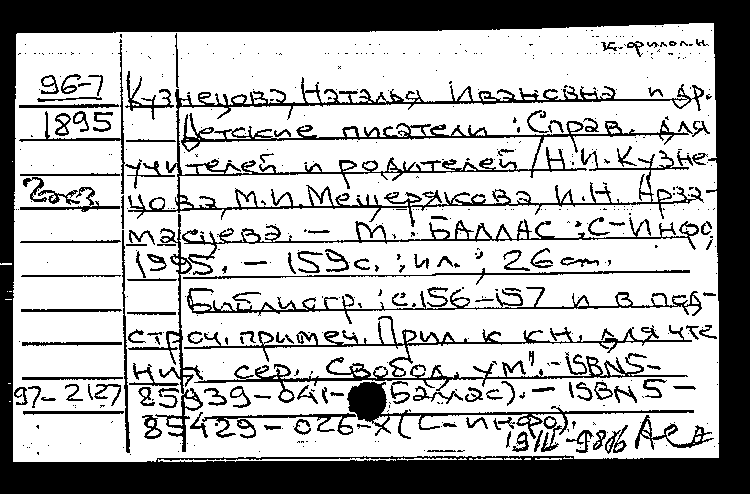 к. филол. н.
96-7 Кузнецова, Наталья Ивановна и др.
1895 Детские писатели : Справ. для
учителей и родителей / Н.И. Кузне-
цова, М.И. Мещерякова, И.Н. Арза-
масцева. – М. : БАЛЛАС : С-Инфо,
1995. – 159 с. : ил. ; 26 cm.
Библиогр. : с. 156–157 и в под-
строч. примеч. Прил. к кн. для чте
ния сер. „Свобод. ум". – ISBN 5-
97-2127 85939-041- Баллас). – ISBN 5-
85429-026-X (С-Инфо).